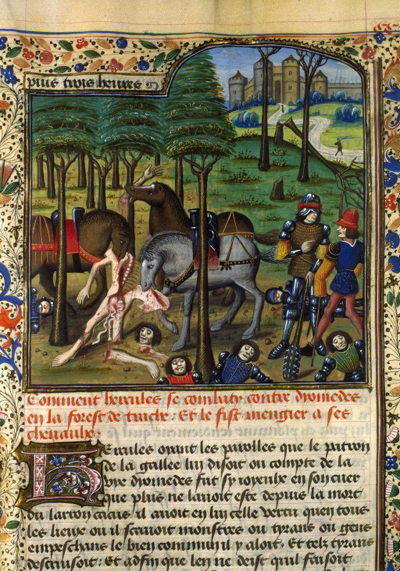 plus trois heures
Comment hercules se combaty contre dyomedes
en la forest de trache: Et le fist mengier a ses
chevaulx
Hercules oyant les parolles que le patron
de la gallee luy disoit ou compte de la
dyomedes fut sy joyeulx en son cuer
que plus ne lavoit este depuis la mort
du larron cacus il avoit en luy celle vertu quen tous
les lieux ou il scavoit monstres ou tyrans ou gens
empeschans le bien commun il y aloit. Et telz tyrans
destruisoit: et adfin que len ne deist quil faisoit